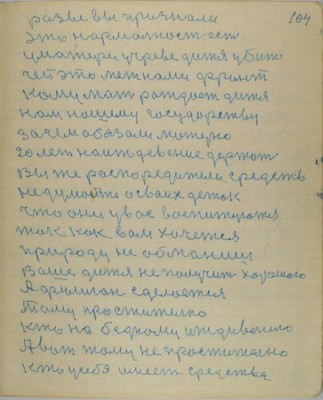 104
разве вы признали
это нармалност есть
у матери чреве дитя убит
чей это
кому мат раждает дитя
нам нашему государству
зачем обязали матерю
20 лет на иждевение держат
вы же распоредители средств
не думайте о сваих деток
что они у вас воспитуются
так как вам хочется
природу не обманиш
Ваше дитя не получит хорошого
А
Таму простително
кто на бедному иждивению
А вот таму не простително
кто у себя имеет средства